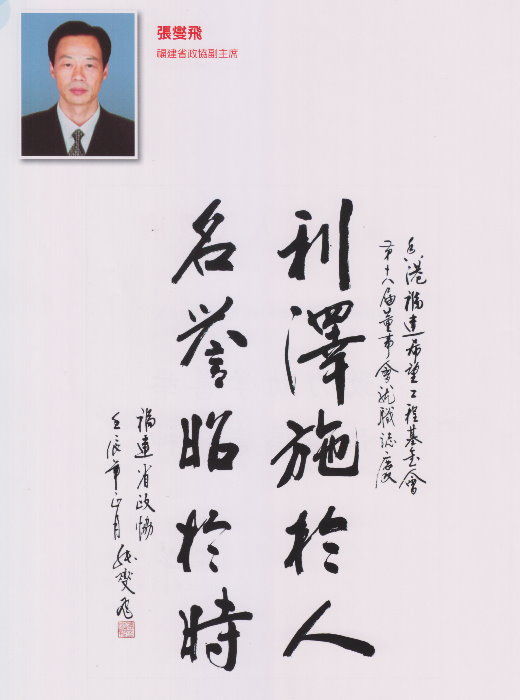 張燮飛
福建省政協副主席
香港福建希望工程基金會
第十八届董事會就職誌慶
利澤施於人
名誉昭於時
福建省政協
壬辰年正月 張燮飛